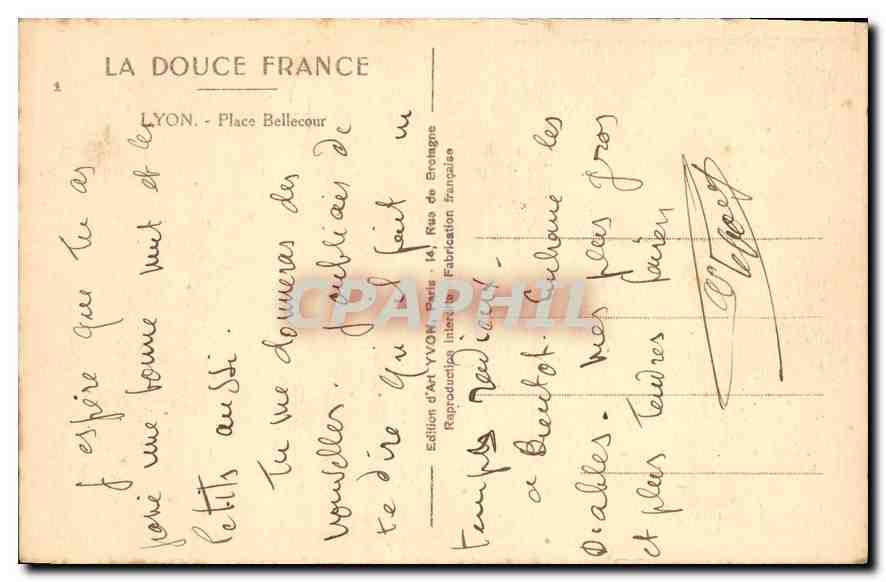 LA DOUCE FRANCE
1
LYON. - Place Bellecour
J'espère que tu as
passé une bonne nuit et les
Petits aussi.
Tu me donneras des
nouvelles. J'oubliais de
te dire qu'il fait un
temps radieux.
a Bientot. Embrasse les
Diables. Mes plus gros
et plus tendres
Edition d'Art YVON, Paris - 14, Rue de Bretagne
Reproduction Interdite Fabrication française
CPAPHIL